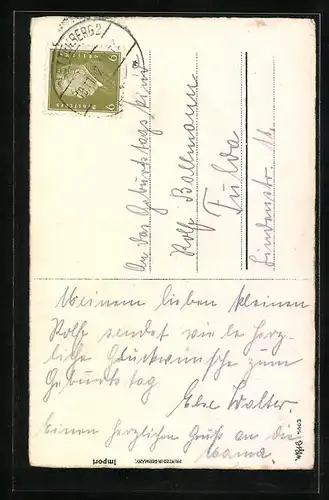 An das Geburtstagskind
Rolf Ballmann
Fulda
Lindenstr.
Meinem lieben kleinen
Rolf sendet viele herz-
liche Glückwünsche zum
Geburtstag
Else Walter.
Einen herzlichen Gruß an die
Mama.
Import
PRINTED IN GERMANY